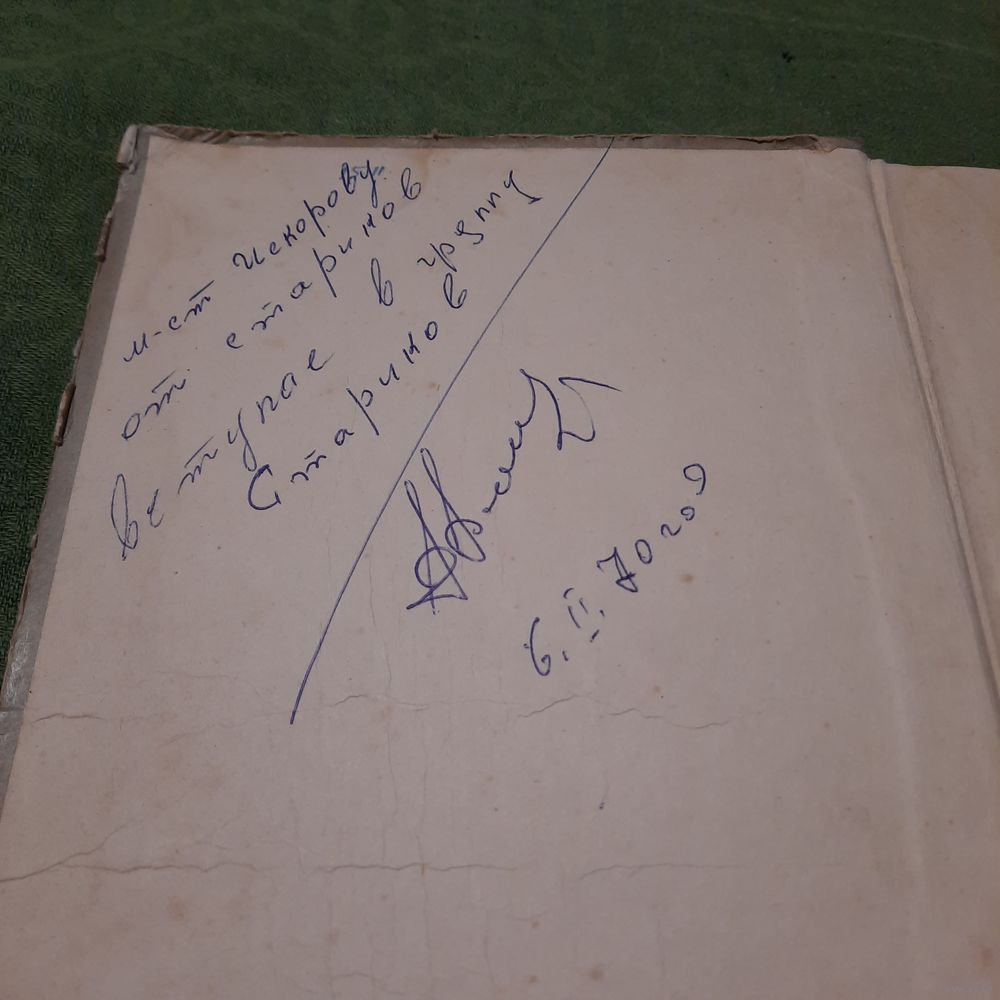 м-ст Искорову
от стариков
вступае в группу
Стариков
6.II.70 год